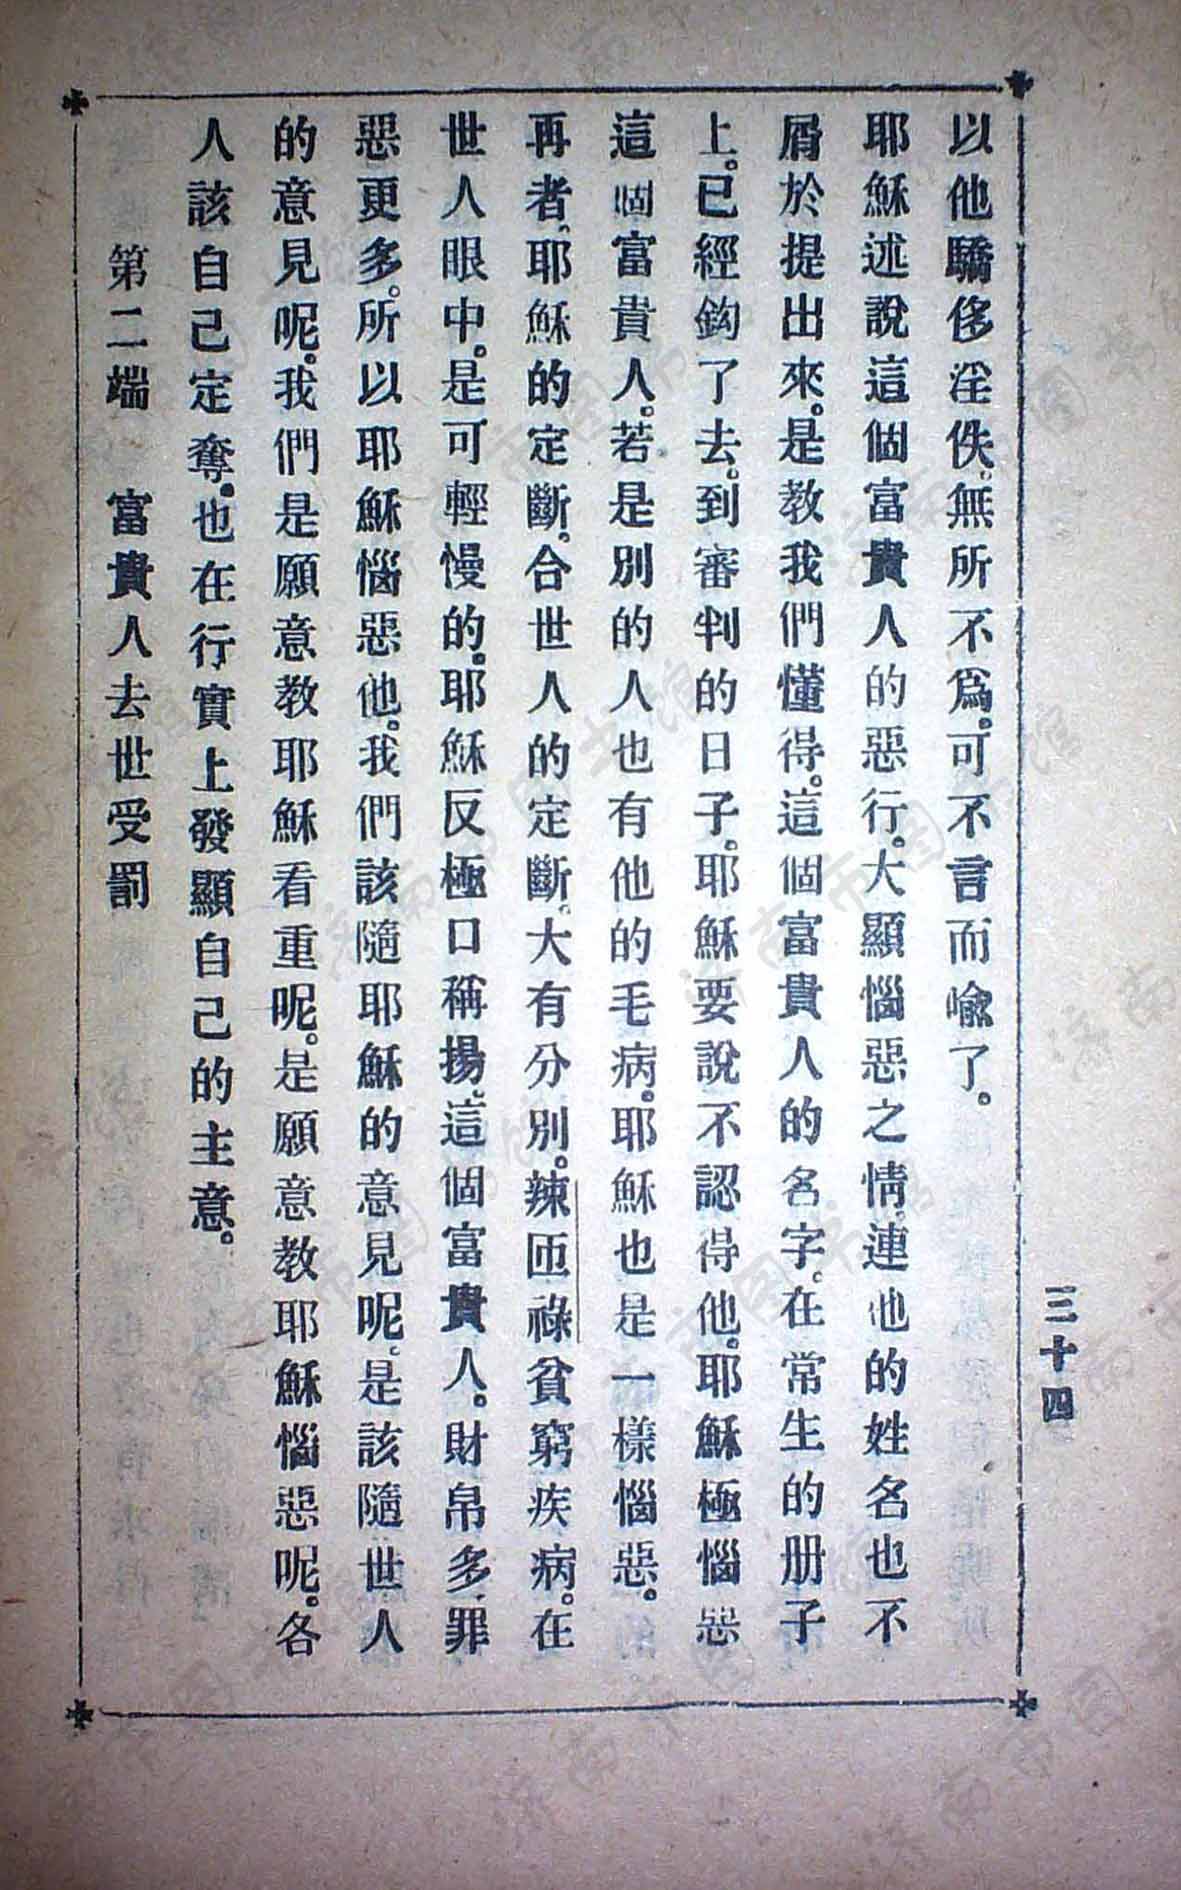 以他驕侈淫佚。無所不爲。可不言而喩了。
耶穌述說這個富貴人的惡行。大顯惱惡之情。連他的姓名也不
屑於提出來。是教我們懂得。這個富貴人的名字。在常生的册子
上。已經鈎了去。到審判的日子。耶穌要說不認得他。耶穌極惱惡
這個富貴人。若是別的人也有他的毛病。耶穌也是一樣惱惡。
再者、耶穌的定斷。合世人的定斷。大有分別。辣匝祿貧窮疾病。在
世人眼中。是可輕慢的。耶穌反極口稱揚、這個富貴人。財帛多、罪
惡更多。所以耶穌惱惡他。我們該隨耶穌的意見呢。是該隨世人
的意見呢。我們是願意教耶穌看重呢。是願意教耶穌惱惡呢。各
人該自己定奪。也在行實上發顯自己的主意。
第二端　富貴人去世受罰
三十四
济南市图书馆